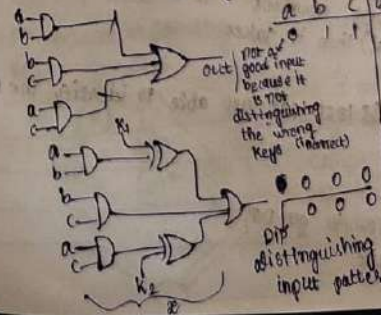 a b c
0 1 1
a
b
b
c
a
c
out
not a
good input
because it
is not
distinguishing
the wrong
keys (incorrect)
K1
a
b
b
c
a
c
K2
0 0 0
0 0 0
DIP
distinguishing
input patte